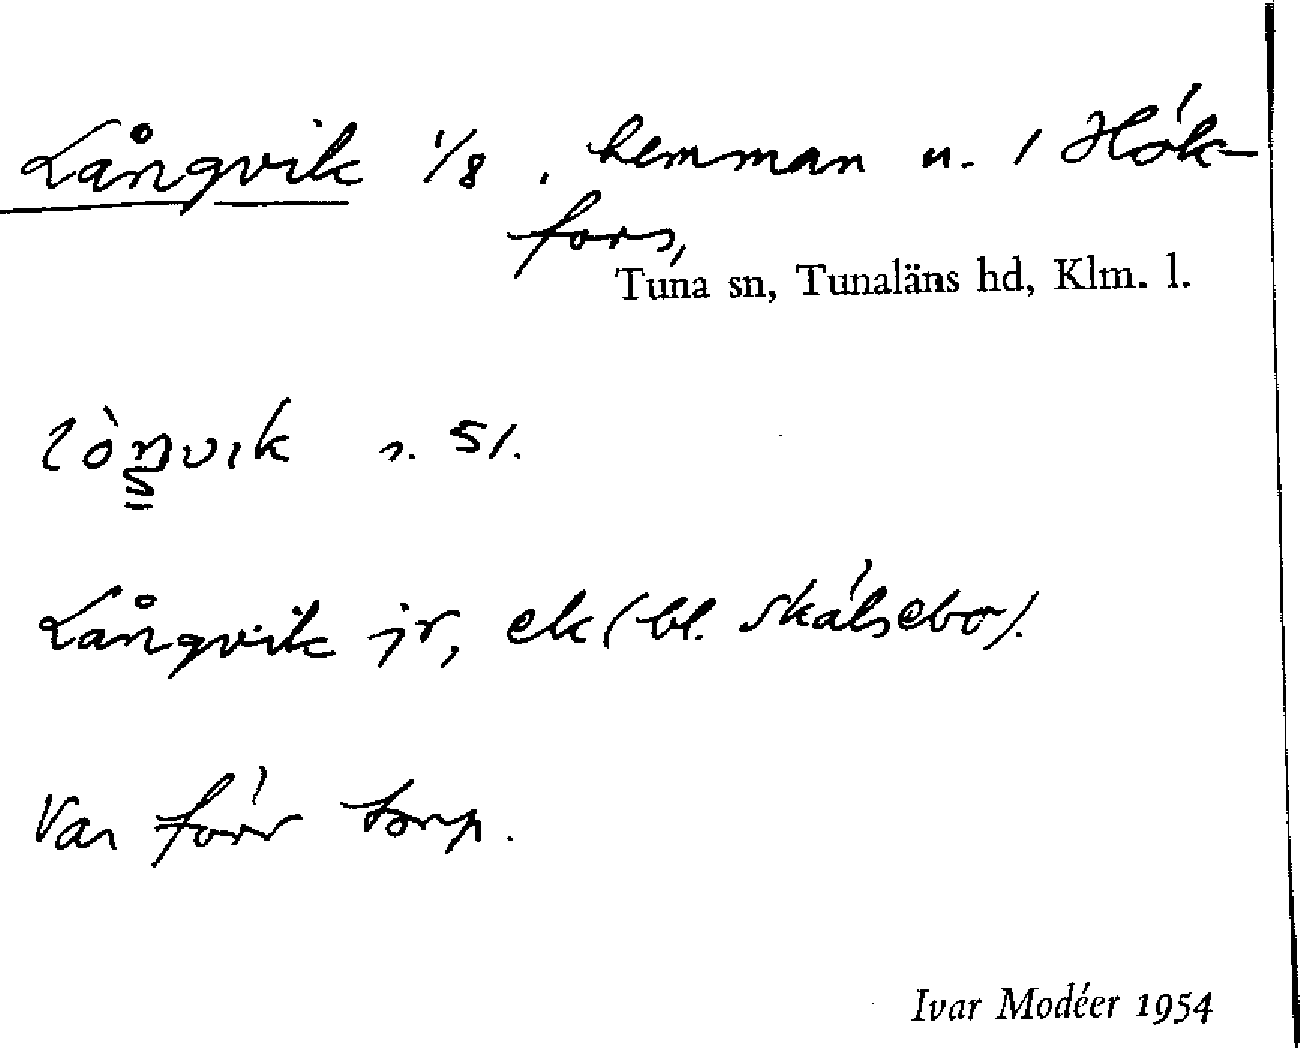 Långvik 1/8, hemman u. 1 Hök-
fors,
Tuna sn, Tunaläns hd, Klm. l.
lòŋvik s. 51.
Långvik jr, ek (bl. Skälsebo).
Var förr torp.
Ivar Modéer 1954